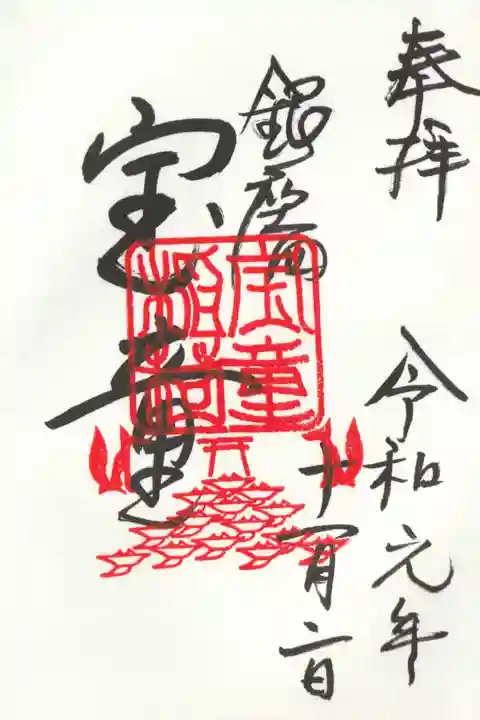 奉拝
令和元年
十一月二日
銀座四
宝童
宝童
稲荷